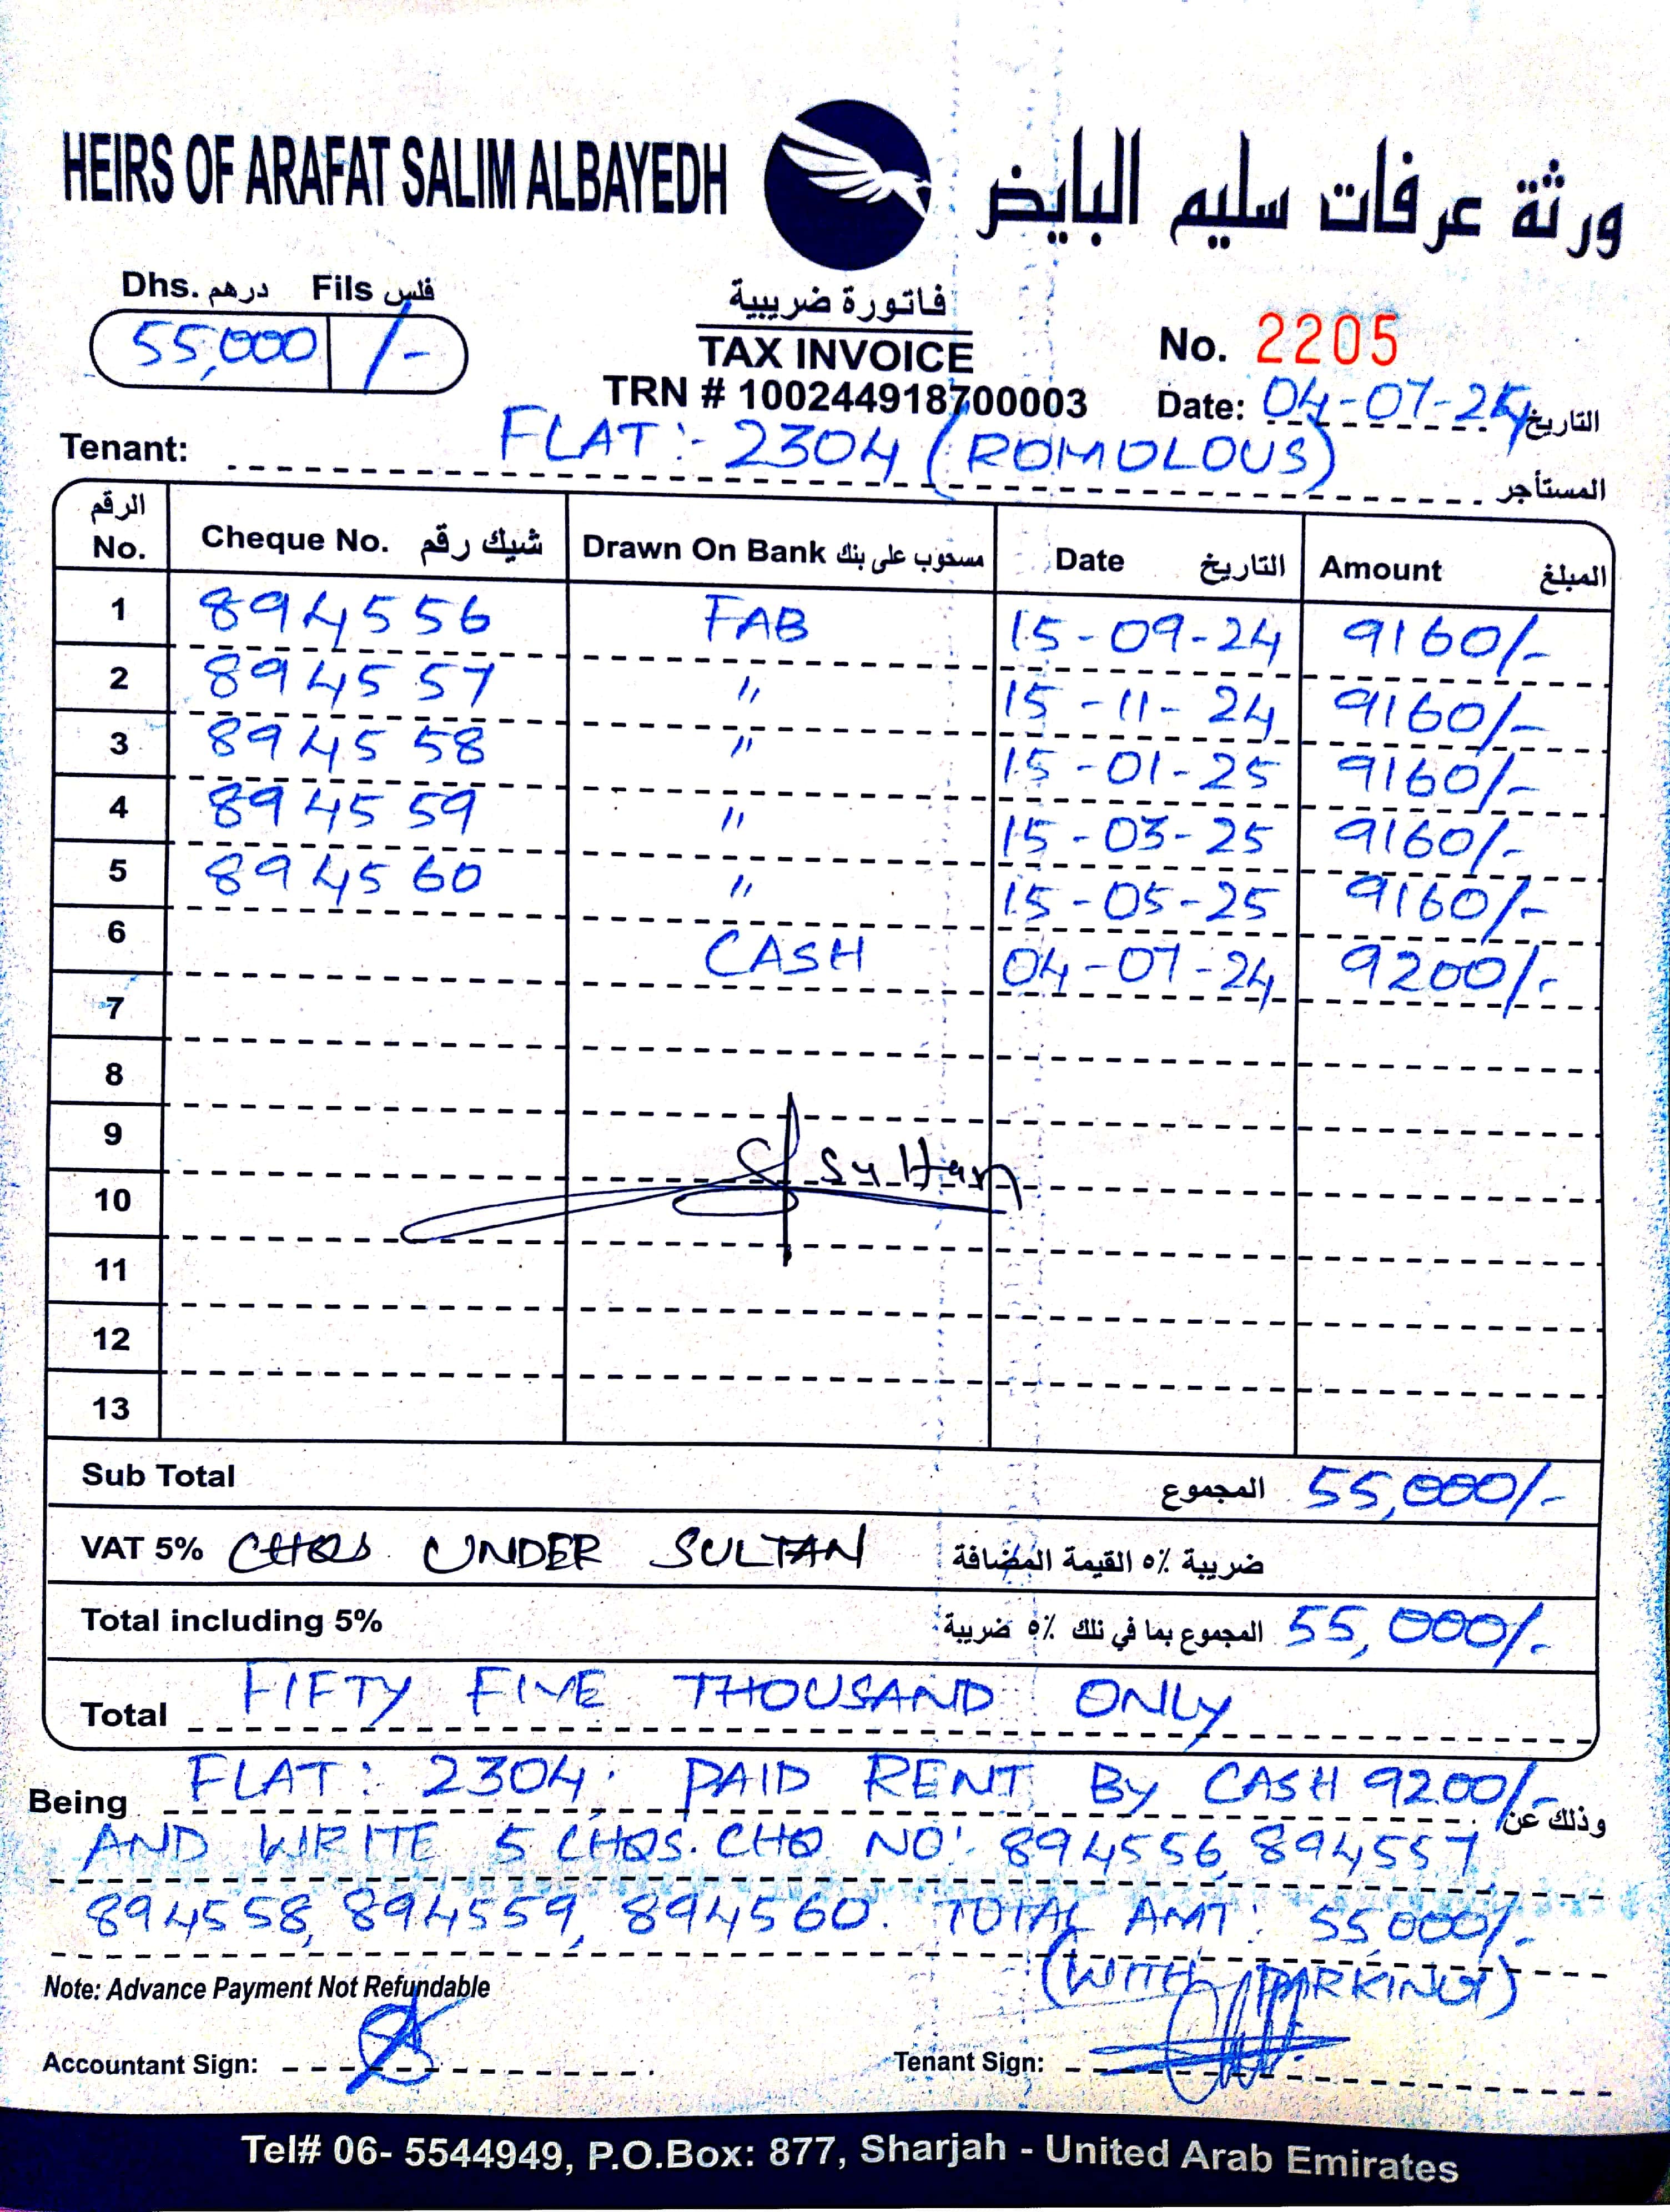 HEIRS OF ARAFAT SALIM ALBAYEDH ورثة عرفات سليم البايض
Dhs. درهم Fils فلس
55,000 /-
فاتورة ضريبية
TAX INVOICE
TRN # 100244918700003
No. 2205
Date: 04-07-24 التاريخ
Tenant: FLAT:- 2304 (ROMOLOUS) المستأجر
الرقم No. Cheque No. شيك رقم Drawn On Bank مسحوب على بنك Date التاريخ Amount المبلغ
1 894556 FAB 15-09-24 9160/-
2 894557 " 15-11-24 9160/-
3 894558 " 15-01-25 9160/-
4 894559 " 15-03-25 9160/-
5 894560 " 15-05-25 9160/-
6 CASH 04-07-24 9200/-
7
8
9 Sultan
10
11
12
13
Sub Total المجموع 55,000/-
VAT 5% CHQS UNDER SULTAN ضريبة ٥٪ القيمة المضافة
Total including 5% المجموع بما في ذلك ٥٪ ضريبة 55,000/-
Total FIFTY FIVE THOUSAND ONLY
Being FLAT: 2304. PAID RENT BY CASH 9200/- وذلك عن
AND WRITE 5 CHQS. CHQ NO: 894556, 894557,
894558, 894559, 894560. TOTAL AMT: 55,000/-
(WITH PARKING)
Note: Advance Payment Not Refundable
Accountant Sign: Tenant Sign:
Tel# 06- 5544949, P.O.Box: 877, Sharjah - United Arab Emirates